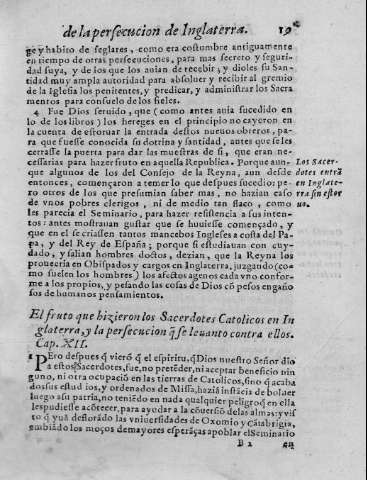 de la persecucion de Inglaterra. 19
ge y habito de seglares, como era costumbre antiguamente
en tiempo de otras persecuciones, para mas secreto y seguri-
dad suya, y de los que los auian de recebir; y dioles su San-
tidad muy ampla autoridad para absoluer y recibir al gremio
de la Iglesia los penitentes, y predicar, y administrar los Sacra
mentos para consuelo de los fieles.
4 Fue Dios seruido, que (como antes auia sucedido en
lo de los libros) los hereges en el principio no cayeron en
la cuenta de estoruar la entrada destos nueuos obreros, pa-
ra que fuesse conocida su dotrina y santidad, antes que se les
cerrasse la puerta para dar las muestras de si, que eran ne-
cessarias para hazer fruto en aquella Republica. Porque aun-
que algunos de los del Consejo de la Reyna, aun desde
entonces, començaron a temer lo que despues sucedio; pe-
ro otros de los que presumian saber mas, no hazian caso
de vnos pobres clerigos, ni de medio tan flaco, como
les parecia el Seminario, para hazer resistencia a sus inten-
tos: antes mostrauan gustar que se huuiesse començado, y
que en el se criassen tantos mancebos Ingleses a costa del Pa-
pa, y del Rey de España; porque si estudiauan con cuy-
dado, y salian hombres doctos, dezian, que la Reyna los
proueeria en Obispados y cargos en Inglaterra, juzgando (co-
mo suelen los hombres) los afectos agenos cada vno confor-
me a los propios, y pesando las cosas de Dios cõ pesos engaño
sos de humanos pensamientos.
Los Sacer-
dotes entrã
en Inglate-
rra sin estor
uo.
El fruto que hizieron los Sacerdotes Catolicos en In
glaterra, y la persecucion q̃ se leuanto contra ellos.
Cap. XII.
1 PEro despues q̃ vierõ q̃ el espiritu, q̃ Dios nuestro Señor dio
a estos Sacerdotes, fue, no pretẽder, ni aceptar beneficio nin
guno, ni otra ocupaciõ en las tierras de Catolicos, sino q̃ acaba
dos sus estudios, y ordenados de Missa, haziã instãcia de boluer
luego a su patria, no teniẽdo en nada qualquier peligro q̃ en ella
les pudiesse acõtecer, para ayudar a la cõuersiõ de las almas: y vis
to q̃ yuã desflorãdo las vniuersidades de Oxomio y Cãtabrigia,
embiãdo los moços de mayores esperãças a poblar el Seminario
B 2 en